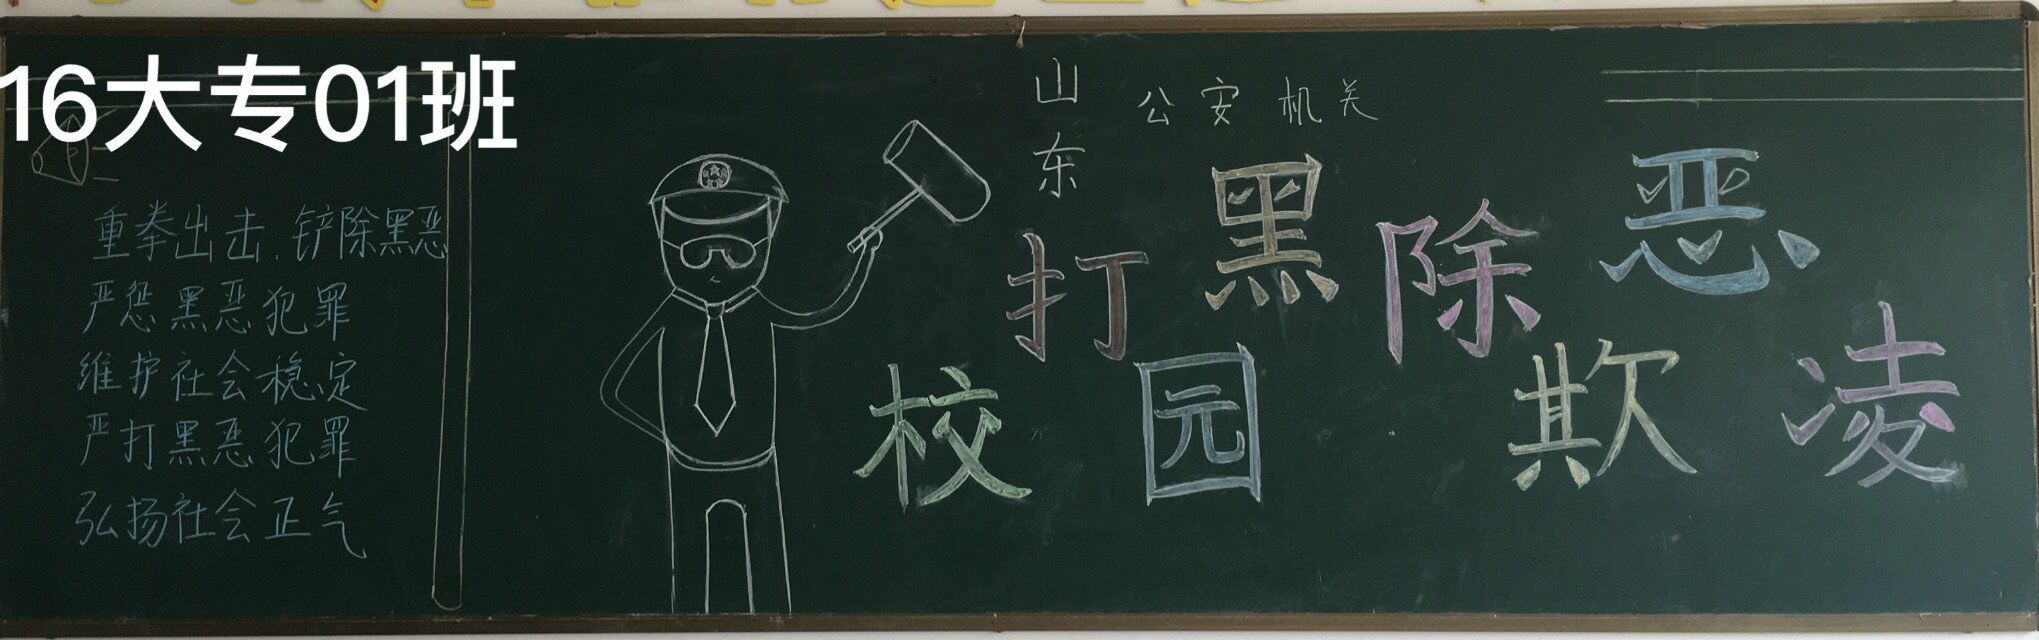 16大专01班
重拳出击.铲除黑恶
严惩黑恶犯罪
维护社会稳定
严打黑恶犯罪
弘扬社会正气
山东
公安机关
打黑除恶
校园欺凌